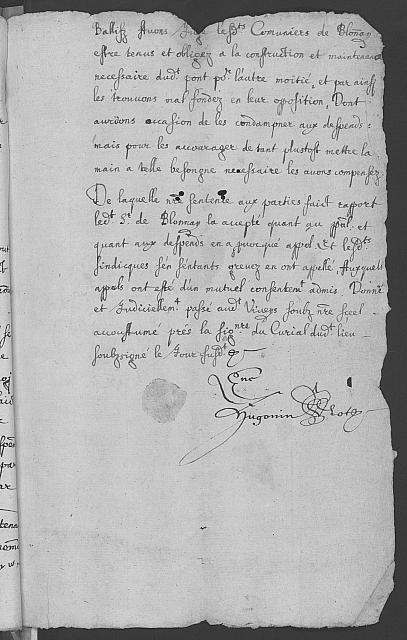 Ballifz Avons Jugé lesdts Comuniers de Blonay
estre tenus et obligez a la construction et maintenance
necessaire dudt pont pr l'autre moitié, et par ainsy
les trouvons mal fondez en leur oposition, Dont
aurions occasion de les condampner aux despends :
mais pour les accourager de tant plustost mettre la
main a telle besongne necessaire les avons compensez.
De laquelle nre sentence aux parties faict raport
ledt Sr de Blonnay la accepté quant au ppal. et
quant aux despends en a provoqué appel Et lesdts
sindicques sen sentants grevez en ont appellé Auxquels
appels ont esté d'un mutuel consentemt admis. Donné
et Judiciellemt passé audt Viveys soubz nre scel
accoustumé prés la signre du Curial dudt lieu
soubzsigné le Jour susdt
Hugonin